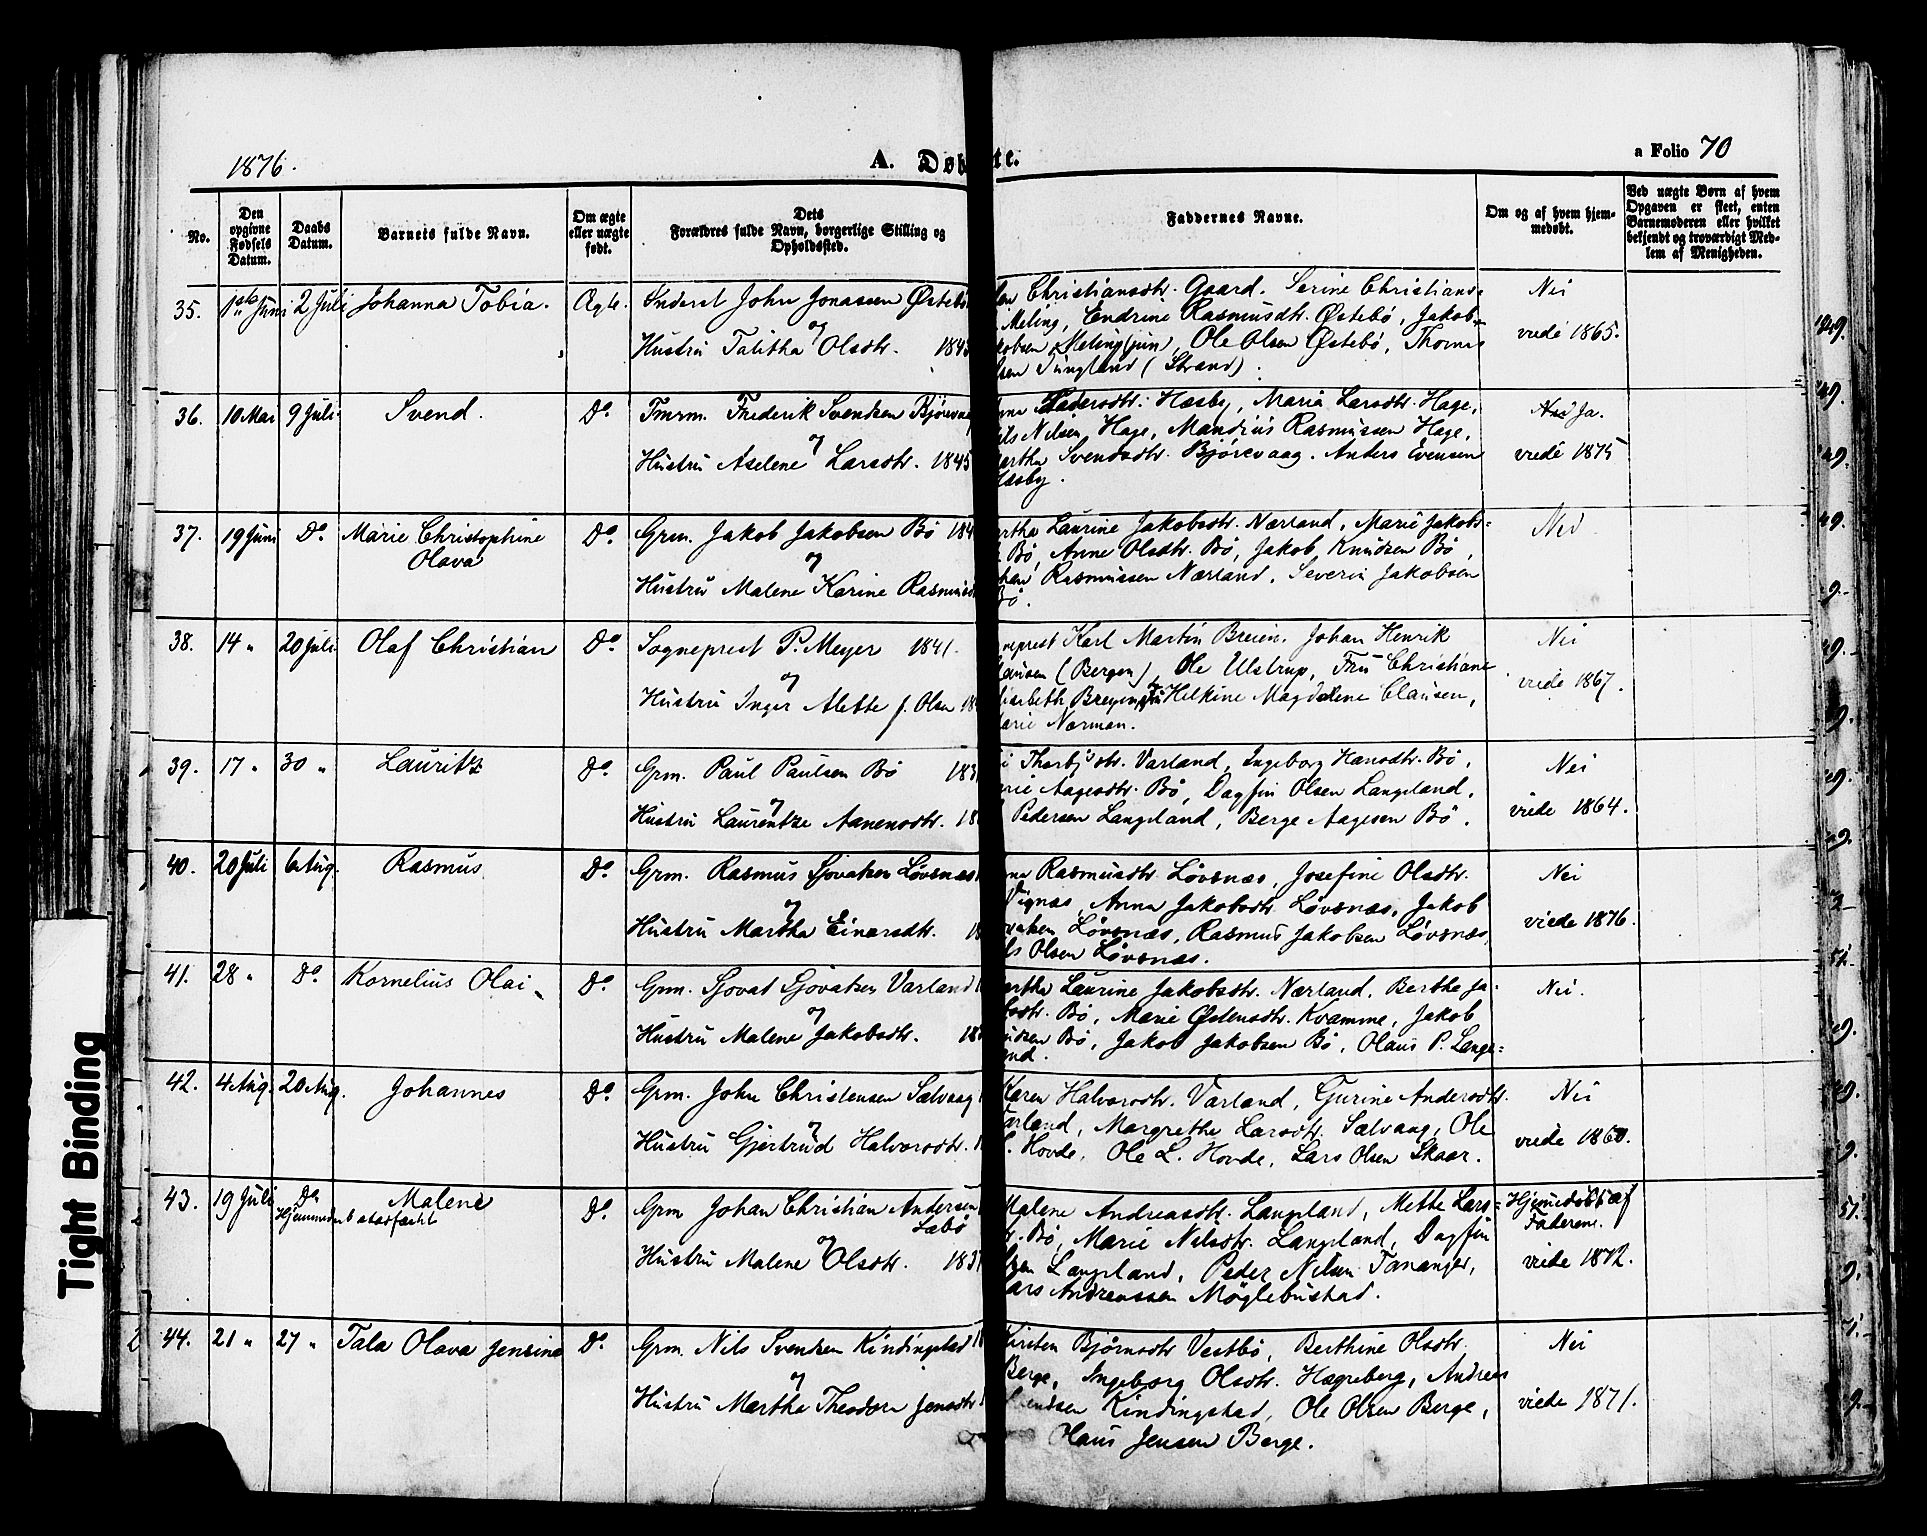 1876.
A. Døb te.
a Folio 70
No.
Den opgivne Fødsels Datum.
Daabs Datum.
Barnets fulde Navn.
Om ægte eller uægte født.
Dets Forældres fulde Navn, borgerlige Stilling og Opholdssted.
Faddernes Navne.
Om og af hvem hjemmedøbt.
Ved uægte Børn af hvem Opgaven er skeet, enten Barnemoderen eller hvilket bekjendt og troværdigt Medlem af Menigheden.
35. 1ste Juni 2 Juli Johanna Tobia. Ægte. Inderst John Jonassen Østebø
og
Hustru Talitha Olsdtr. 1843
Christiansdtr. Gaard. Serine Christians=
Meling, Endrine Rasmusdtr. Østebø, Jakob
Meling jun, Ole Olsen Østebø, Thomas
Tungland (Strand).
Nei
viede 1865.
36. 10 Mai 9 Juli. Svend. Do. Tmrm. Frederik Svendsen Bjørevaag
og
Hustru Aselene Larsdtr. 1845
Hæsby, Maria Larsdtr. Hage,
Nils Nilsen Hage, Mandius Rasmussen Hage,
Svendsdtr. Bjørevaag. Anders Evensen
Hæsby.
Ja.
viede 1875
37. 19 Juni Do. Marie Christophine
Olava
Do. Grm. Jakob Jakobsen Bø
og
Hustru Malene Karine
Laurine Jakobsdtr. Nærland, Marie Jakobs=
Bø, Anne Olsdtr. Bø, Jakob Knudsen Bø,
Rasmussen Nærland, Severin Jakobsen
Bø.
Nei
38. 14 " 20 Juli Olaf Christian Do. Sogneprest P. Meyer 1841.
og
Hustru Inger Alette f. Olsen
Karl Martin Breien. Johan Henrik
Clausen (Bergen), Ole Ulstrup, Fru Christiane
Helkine Magdalene Clausen,
Marie Norman.
Nei
viede 1867.
39. 17 " 30 " Lauritz Do. Grm. Paul Paulsen Bø
og
Hustru Laurentze Aanensdtr.
Varland, Ingeborg Hansdtr. Bø,
Aagesdtr. Bø, Dagfin Olsen Langeland,
Pedersen Langeland, Berge Aagesen Bø.
Nei
viede 1864.
40. 20 Juli 6 Aug. Rasmus Do. Grm. Rasmus Sjovatsen Løvsnæs
og
Hustru Martha Einarsdtr.
Rasmusdtr. Løvsnæs, Josefine Olsdtr.
Vignæs, Anna Jakobsdtr. Løvsnæs, Jakob
Løvsnæs, Rasmus Jakobsen Løvsnæs,
Olsen Løvsnæs.
Nei
viede 1876.
41. 28 " Do. Kornelius Olai Do. Grm. Sjovat Sjovatsen Varland
og
Hustru Malene Jakobsdtr.
Laurine Jakobsdtr. Nærland, Berthe Ja=
Bø, Marie Østensdtr. Kvamme, Jakob
Knudsen Bø, Jakob Jakobsen Bø, Olaus P. Lange=
land.
Nei.
42. 4 Aug. 20 Aug. Johannes Do. Grm. John Christensen Sælvaag
og
Hustru Gjertrud Halvorsdtr.
Karen Halvorsdtr. Varland, Gurine Andersdtr.
Varland, Margrethe Larsdtr. Sælvaag, Ole
Hovde, Ole L. Hovde, Lars Olsen Skaar.
Nei
viede 1860.
43. 19 Juli Do. Malene Do. Grm Johan Christian Andersen
Hjemmedaab stadfæstet
Læbø
og
Hustru Malene Olsdtr.
Malene Andreasdtr. Langeland, Mette Lars=
Bø, Marie Nilsdtr. Langeland, Dagfin
Olsen Langeland, Peder Nilsen Tananger,
Lars Andreassen Møglebustad.
Hjemmedøbt af
Faderen.
viede 1872.
44. 21 " 27 " Tala Olava Jensine Do. Grm. Nils Svendsen Kindingstad
og
Hustru Martha Theodora Jensdtr
Kirsten Bjørnsdtr Vestbø, Berthine Olsdtr.
Berge, Ingeborg Olsdtr. Hagreberg, Andreas
Svendsen Kindingstad, Ole Olsen Berge,
Olaus Jensen Berge.
Nei
viede 1871.
Tight Binding